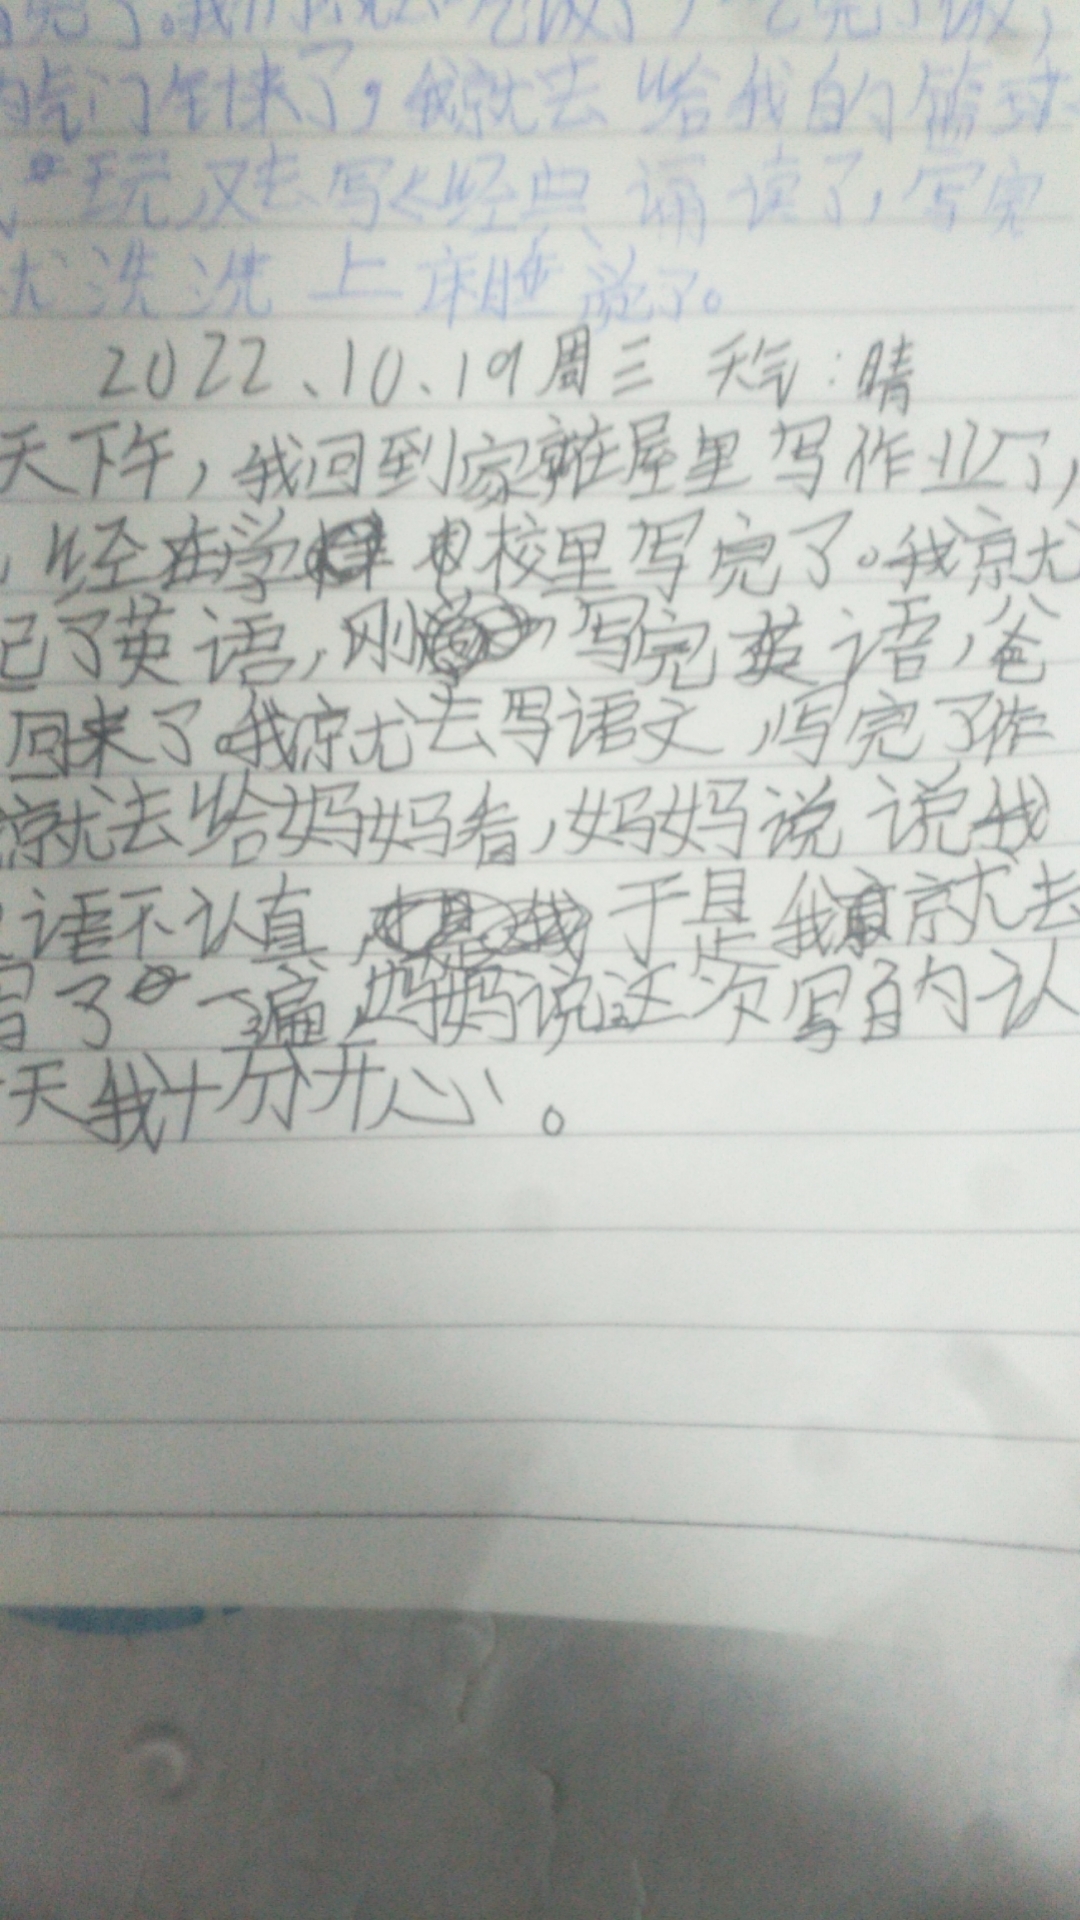 了。我们就去吃饭了,吃完了饭,
气门针来了,我就去给我的篮球
玩,又去写《经典诵读了,写完
尤洗洗上床睡觉了。
2022、10、19周三 天气:晴
天下午,我回到家就在屋里写作业了,
经在学校里写完了。我就
记了英语,刚写完英语,爸
回来了。我就去写语文,写完了作
就去给妈妈看,妈妈说说我
语不认真,于是我就去
写了一遍,妈妈说这次写的认
天我十分开心。